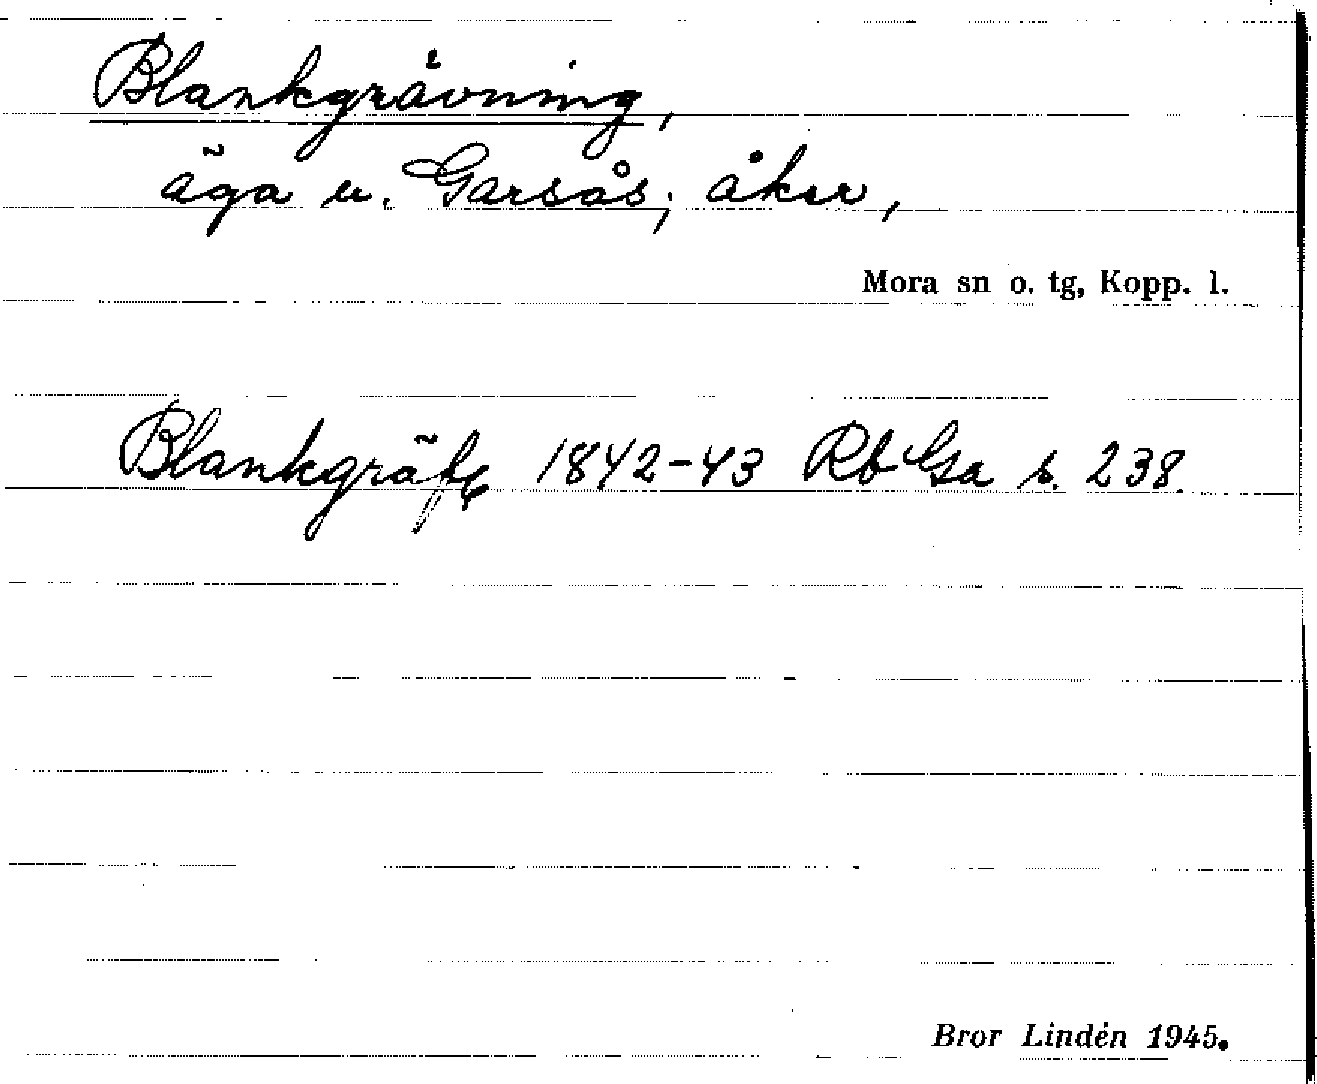 Blankgrävning,
äga u. Garsås; åker,
Mora sn o. tg, Kopp. l.
Blankgräfg 1842-43 Rb Ga s. 238.
Bror Lindén 1945.